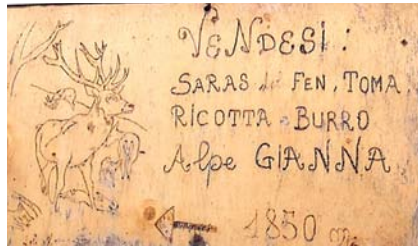 VENDESI:
SARAS del FEN, TOMA,
RICOTTA e BURRO
Alpe GIANNA
1850 m.